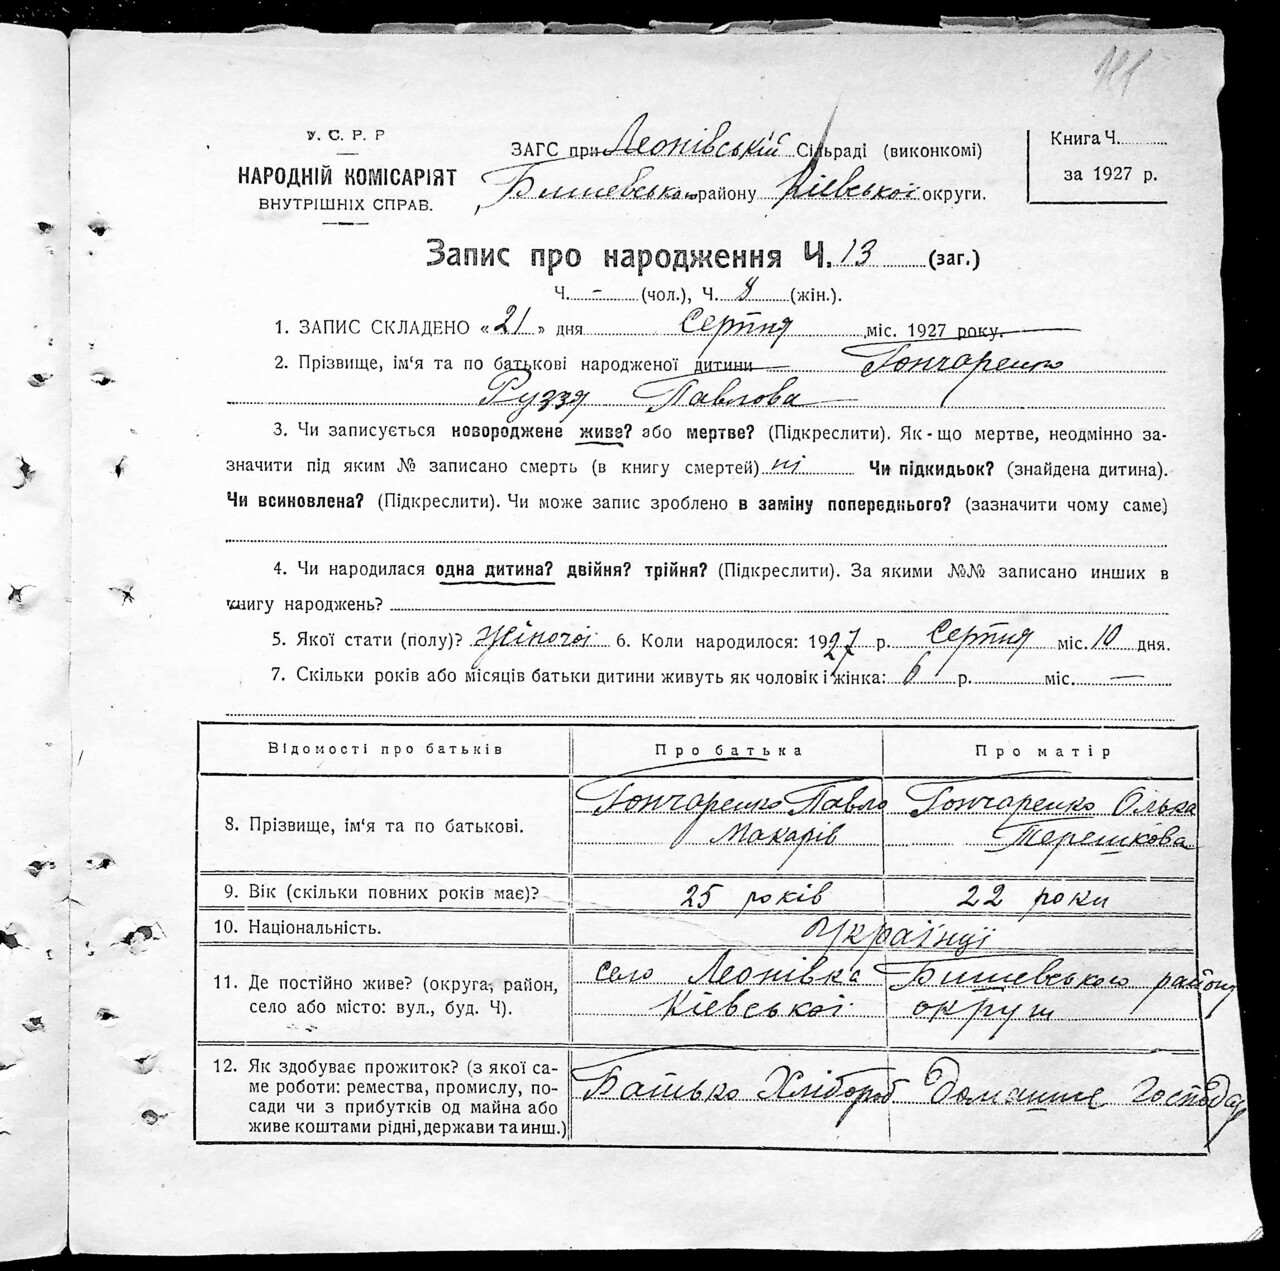 У. С. Р. Р
НАРОДНІЙ КОМІСАРІЯТ
ВНУТРІШНІХ СПРАВ.
ЗАГС при Леонівській Сільраді (виконкомі)
Бишевського району Київської округи.
Книга Ч.
за 1927 р.
Запис про народження Ч. 13 (заг.)
Ч. - (чол.), Ч. 8 (жін.).
1. ЗАПИС СКЛАДЕНО «21» дня Серпня міс. 1927 року.
2. Прізвище, ім'я та по батькові народженої дитини Гончаренко
Руззя Павлова
3. Чи записується новороджене живе? або мертве? (Підкреслити). Як-що мертве, неодмінно за-
значити під яким № записано смерть (в книгу смертей) ні Чи підкидьок? (знайдена дитина).
Чи всиновлена? (Підкреслити). Чи може запис зроблено в заміну попереднього? (зазначити чому саме)
4. Чи народилася одна дитина? двійня? трійня? (Підкреслити). За якими №№ записано инших в
книгу народжень?
5. Якої стати (полу)? Жіночої 6. Коли народилося: 1927 р. Серпня міс. 10 дня.
7. Скільки років або місяців батьки дитини живуть як чоловік і жінка: 6 р. міс. —
Відомості про батьків Про батька Про матір
8. Прізвище, ім'я та по батькові. Гончаренко Павло Макарів Гончаренко Олька Терешкова
9. Вік (скільки повних років має)? 25 років 22 роки
10. Національність. Українці
11. Де постійно живе? (округа, район, село Леонівка Бишевського району
село або місто: вул., буд. Ч). Київської округи
12. Як здобуває прожиток? (з якої са-
ме роботи: ремества, промислу, по- Батько Хлібороб Домашнє Господар
сади чи з прибутків од майна або
живе коштами рідні, держави та инш.)